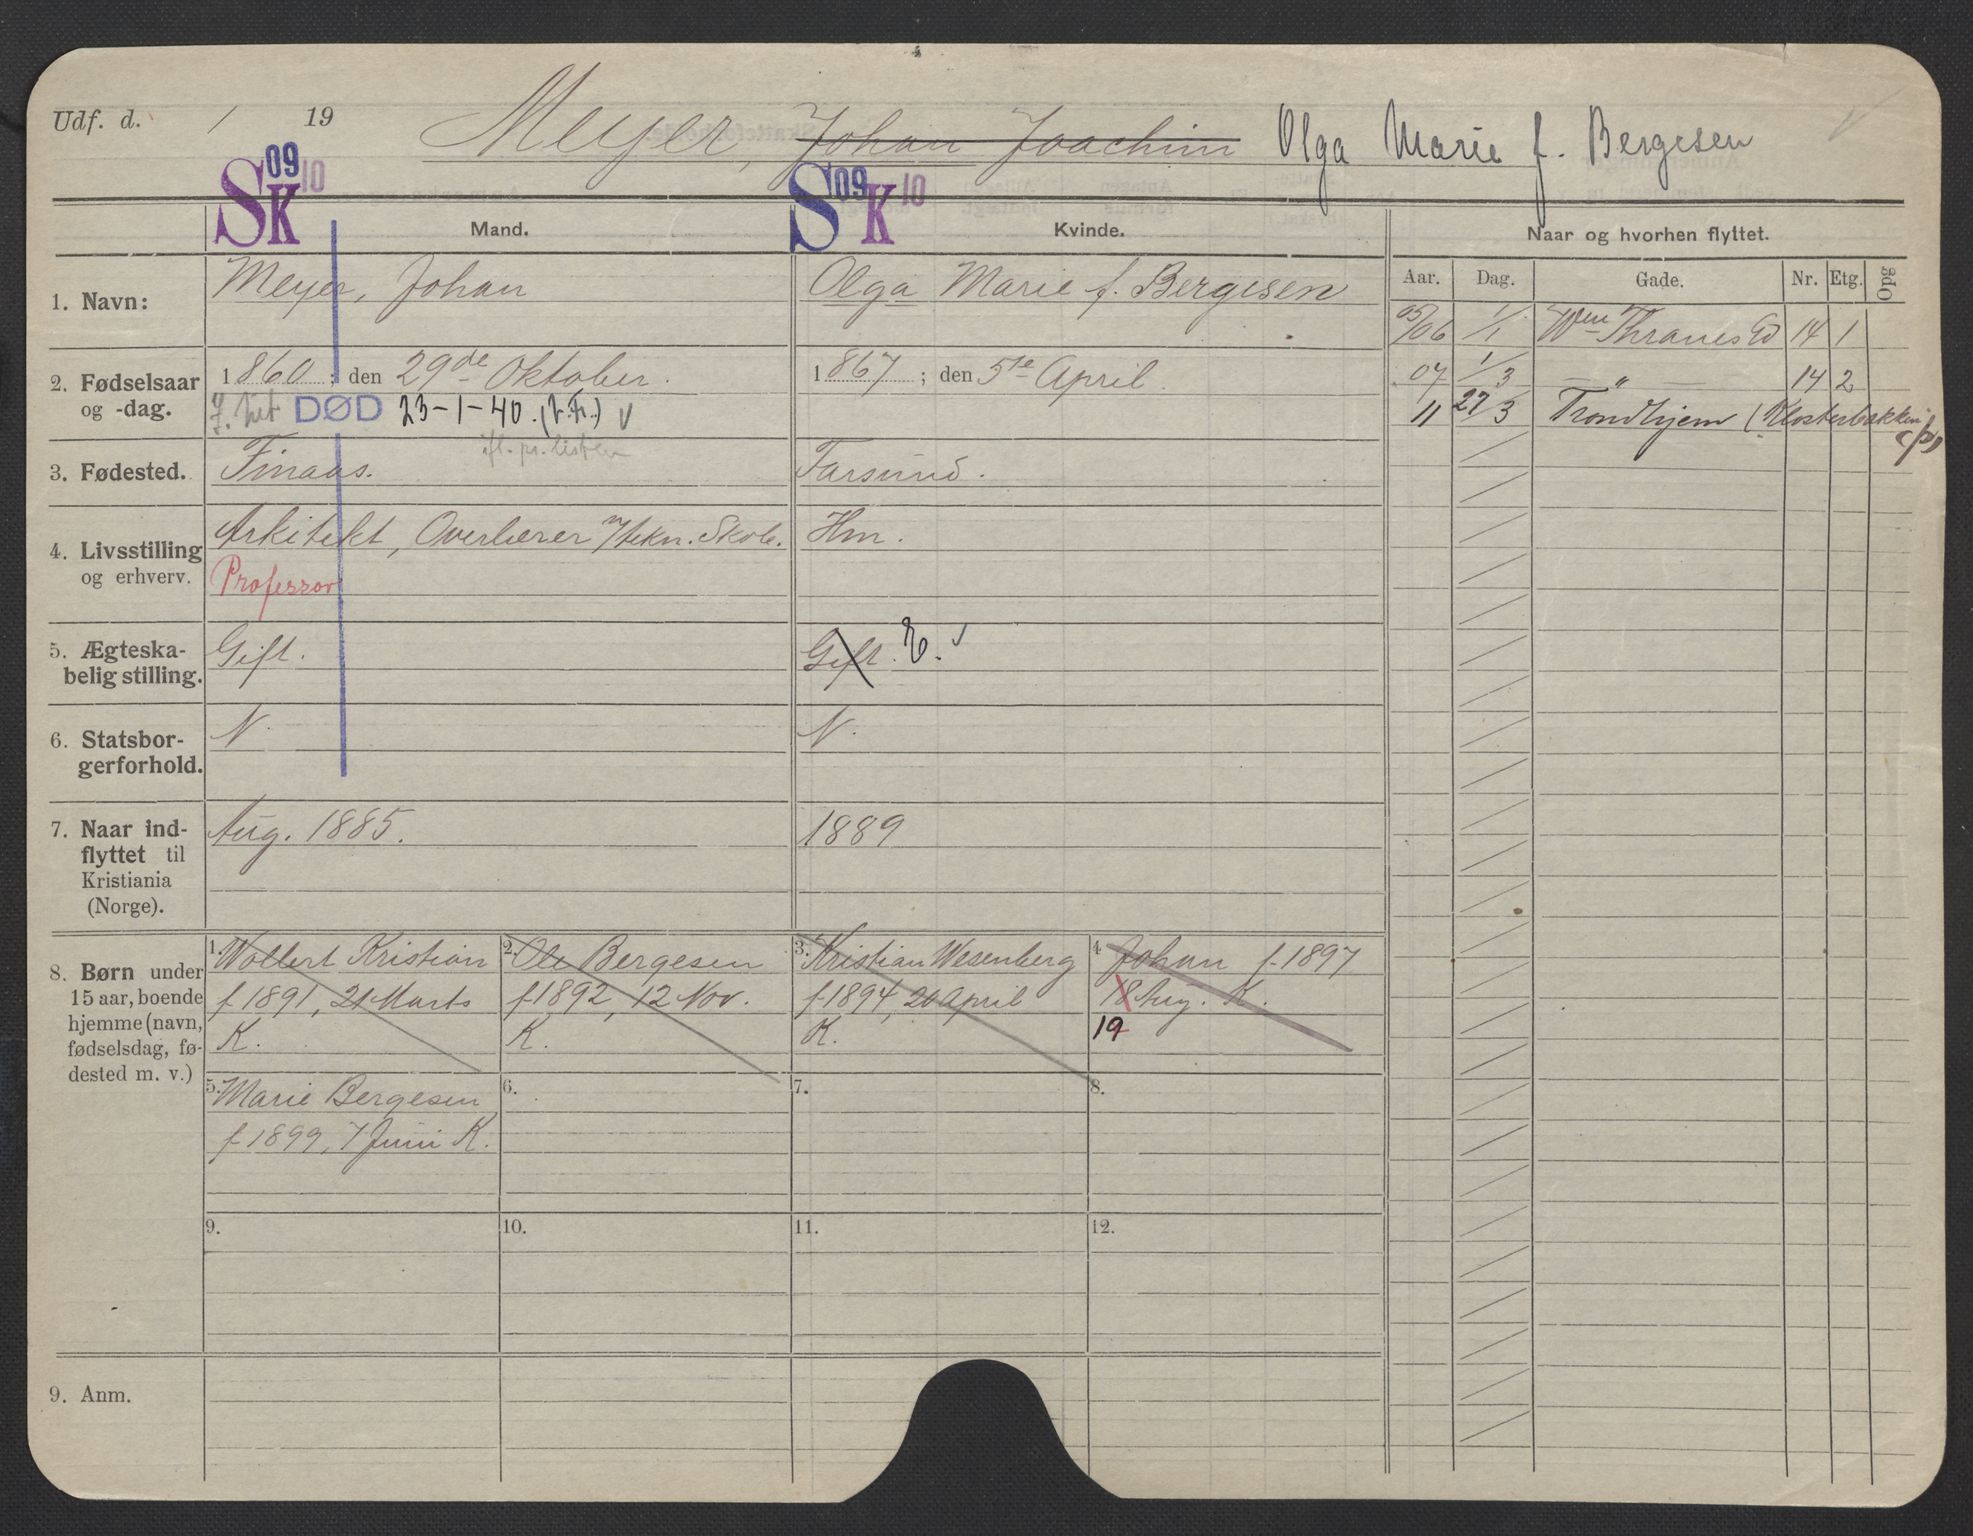 Udf. d. / 19
Meyer, Johan Joachim Olga Marie f. Bergesen
S 09 K 10
S 09 K 10
Mand.
Kvinde.
Naar og hvorhen flyttet.
Aar. Dag. Gade. Nr. Etg. Opg
1. Navn:
Meyer, Johan
Olga Marie f. Bergesen
05/06 1/1 Wm Thranes Gd 14 1
2. Fødselsaar og -dag.
1860; den 29de Oktober.
1867; den 5te April.
07 1/3 — " — 14 2
DØD 23-1-40. (V.Fr.) v
11 27/3 Trondhjem (Klosterbakken
ifl. pr. listen
3. Fødested.
Finaas.
Farsund.
4. Livsstilling og erhverv.
Arkitekt, Overlærer v/tekn. Skole.
Professor
Hm.
5. Ægteska-
belig stilling.
Gift.
Gift. E. v
6. Statsbor-
gerforhold.
N.
N.
7. Naar ind-
flyttet til
Kristiania
(Norge).
Aug. 1885.
1889
8. Børn under
15 aar, boende
hjemme (navn,
fødselsdag, fø-
dested m. v.)
1. Wollert Kristian
f 1891, 21 Marts
K.
2. Ole Bergesen
f 1892, 12 Nov.
K.
3. Kristian Wesenberg
f 1894, 20 April
K.
4. Johan f. 1897
18 Aug. K.
19
5. Marie Bergesen
f 1899, 7 Juni K.
6.
7.
8.
9.
10.
11.
12.
9. Anm.